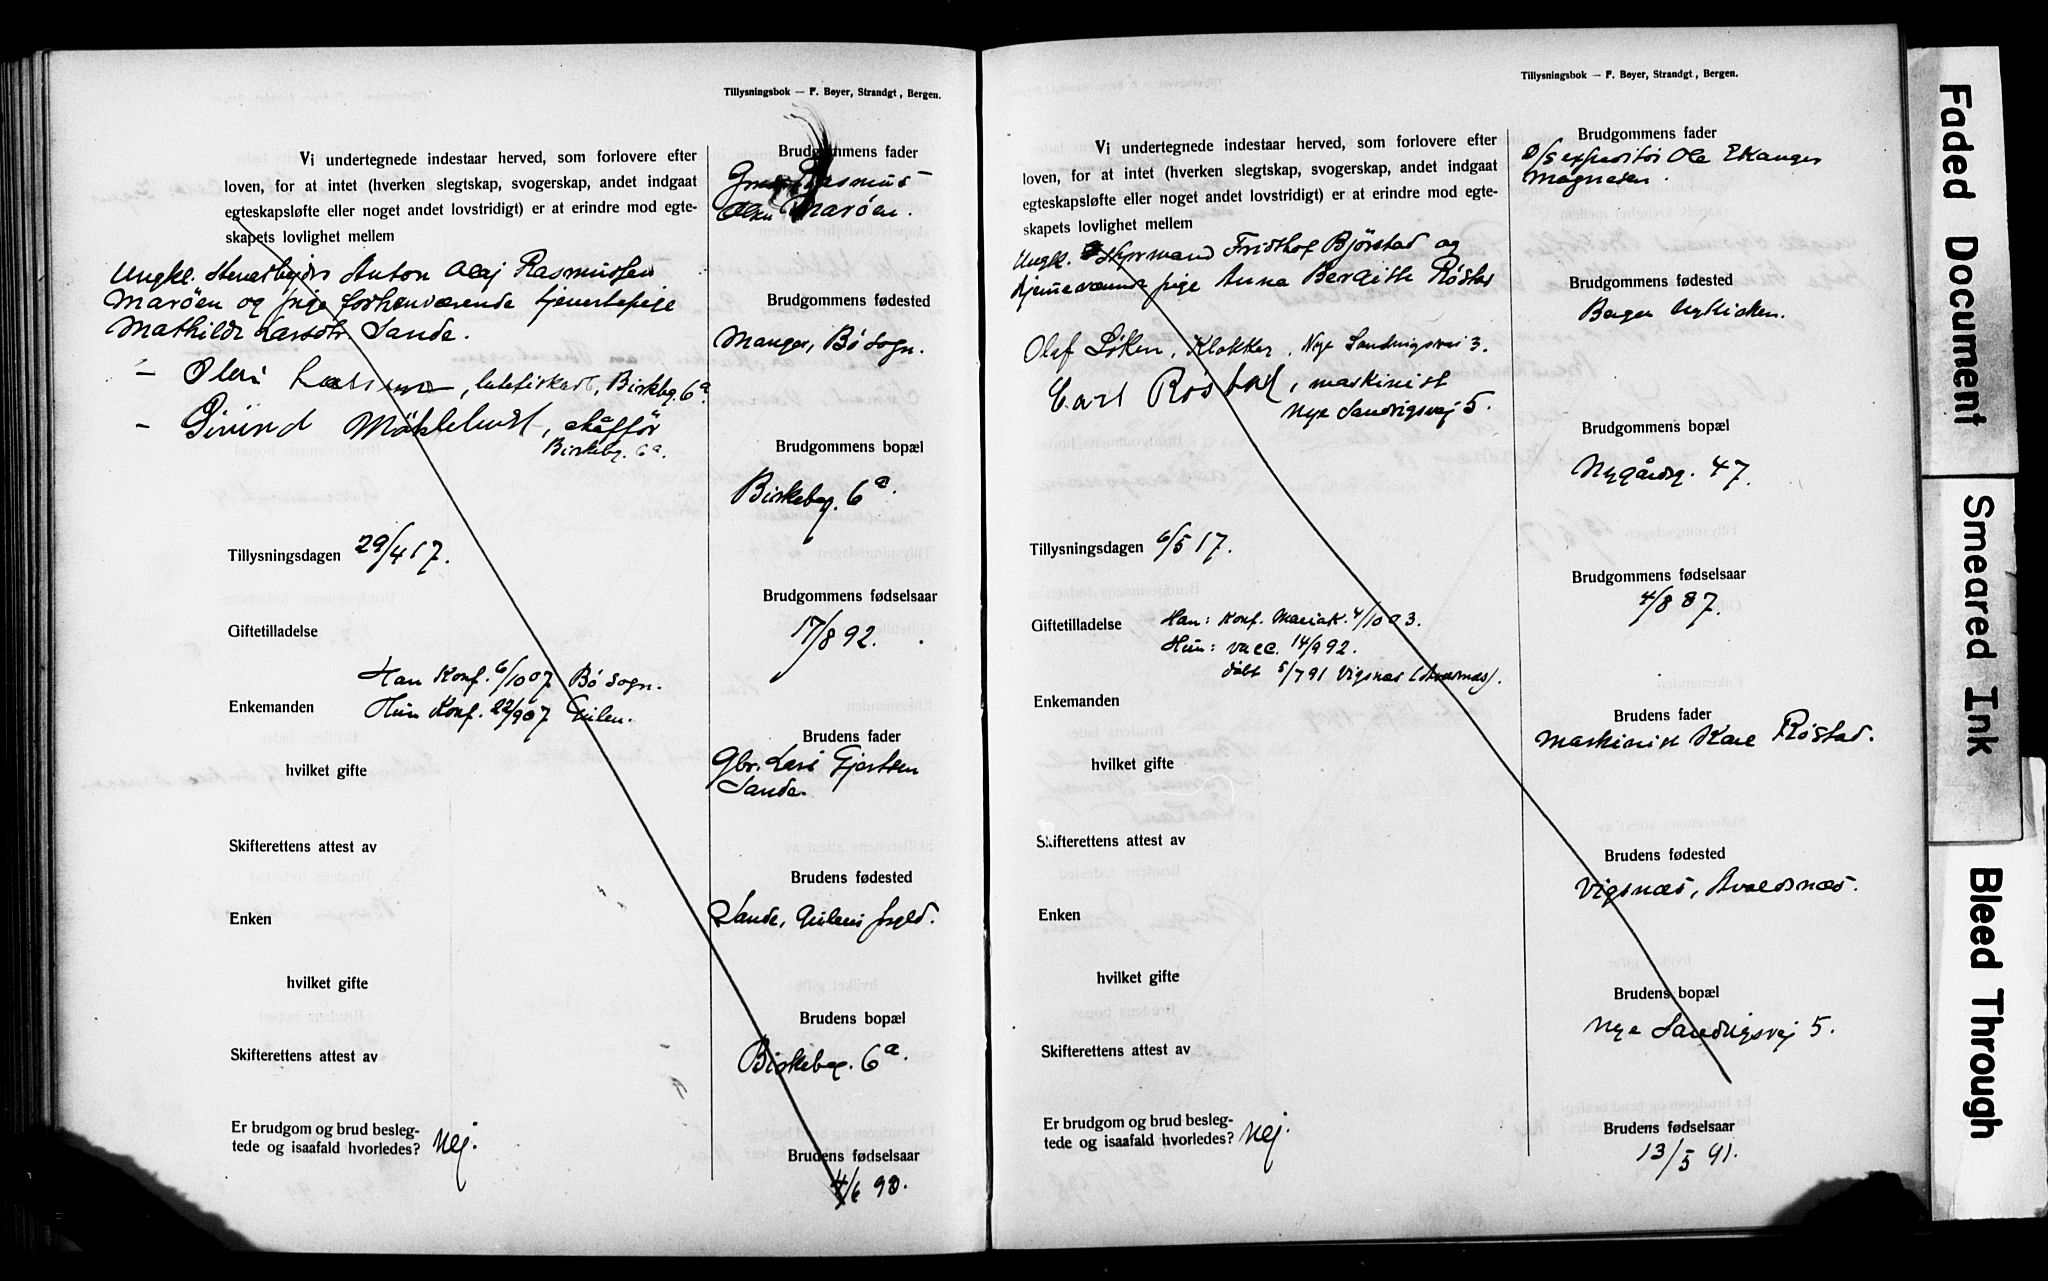 Tillysningsbok — F. Beyer, Strandgt, Bergen.
Vi undertegnede indestaar herved, som forlovere efter
loven, for at intet (hverken slegtskap, svogerskap, andet indgaat
egteskapsløfte eller noget andet lovstridigt) er at erindre mod egte-
skapets lovlighet mellem
Ungkl. Stenarbeider Anton Olaj Rasmussen
Marøen og pige forhenværende tjenestepige
Mathilde Larsdtr. Sande.
Larsen, Birkebg. 6a.
Eivind, chaffør
Birkebg. 6a.
Tillysningsdagen 29/4 17.
Giftetilladelse
Han Konf. 6/10 07 Bø sogn.
Enkemanden
Hun Konf. 22/9 07 Gulen.
hvilket gifte
Skifterettens attest av
Enken
hvilket gifte
Skifterettens attest av
Er brudgom og brud besleg-
tede og isaafald hvorledes? Nej.
Brudgommens fader
Rasmus
Olsen Marøen.
Brudgommens fødested
Manger, Bø sogn.
Brudgommens bopæl
Birkebeg. 6a.
Brudgommens fødselsaar
17/8 92.
Brudens fader
Gbr. Lars Gjertsen
Sande.
Brudens fødested
Sande, Gulens prgld.
Brudens bopæl
Birkebeg. 6a.
Brudens fødselsaar
4/6 93.
Tillysningsbok — F. Beyer, Strandgt, Bergen.
Vi undertegnede indestaar herved, som forlovere efter
loven, for at intet (hverken slegtskap, svogerskap, andet indgaat
egteskapsløfte eller noget andet lovstridigt) er at erindre mod egte-
skapets lovlighet mellem
Ungk. Styrmand Fridthof Bjørstad og
hjemmeværende pige Anna Bergithe Røstad
Olaf Løken, Klokker, Nye Sandvigsvei 3.
Carl Røstad, maskinist
Nye Sandvigsvej 5.
Tillysningsdagen 6/5 17.
Giftetilladelse
Han: Konf. Mariak. 4/10 03.
Hun: vacc. 14/9 92.
døbt 5/7 91 Vigsnæs (Avaldsnæs).
Enkemanden
hvilket gifte
Skifterettens attest av
Enken
hvilket gifte
Skifterettens attest av
Er brudgom og brud besleg-
tede og isaafald hvorledes? Nej.
Brudgommens fader
D/S expeditør Ole Ekanger
Magnesen.
Brudgommens fødested
Bergen Nykirken.
Brudgommens bopæl
Nygårdsg. 47.
Brudgommens fødselsaar
4/8 87.
Brudens fader
Maskinist Karl Røstad.
Brudens fødested
Vigsnæs, Avaldsnæs.
Brudens bopæl
Nye Sandvigsvej 5.
Brudens fødselsaar
13/5 91.
Faded Document
Smeared Ink
Bleed Through